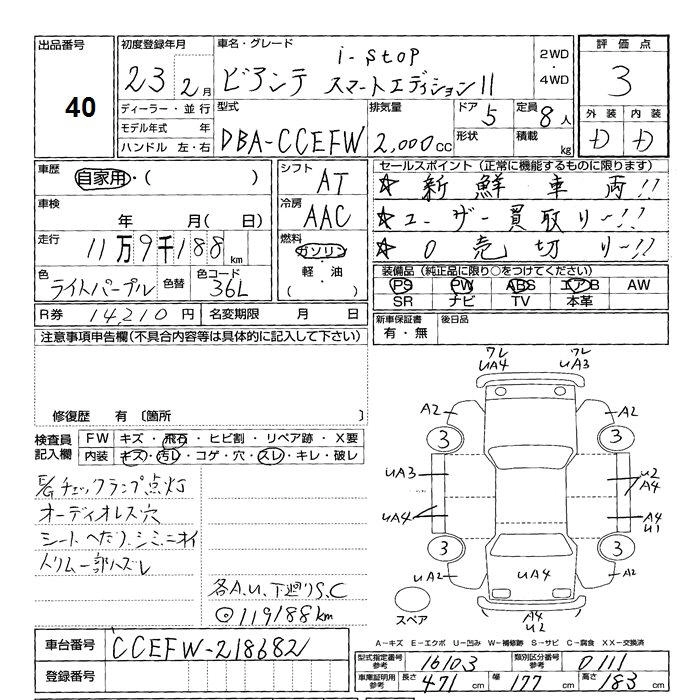 出品番号
40
初度登録年月
23 2月
車名・グレード
i-stop
ビアンテ スマートエディションII
2WD
・
4WD
評価点
3
ディーラー・並行
モデル年式 年
ハンドル 左・右
型式
DBA-CCEFW
排気量
2,000cc
ドア 5
形状
定員 8人
積載 kg
外装 内装
D D
車歴
自家用・( )
車検
年 月( 日)
走行
11万9千188km
色
ライトパープル
色替
色コード
36L
シフト
AT
冷房
AAC
燃料
ガソリン
・
軽・油
( )
セールスポイント(正常に機能するものに限ります)
☆ 新鮮車両!!
☆ ユーザー買取り~!!
☆ 0売切り~!!
装備品(純正品に限り○をつけてください)
PS PW ABS エアB AW
SR ナビ TV 本革
R券 14,210円
名変期限 月 日
新車保証書
有・無
後日品
注意事項申告欄(不具合内容等は具体的に記入して下さい)
修復歴 有 〔箇所 〕
検査員
記入欄
FW キズ・飛石・ヒビ割・リペア跡・X要
内装 キズ・汚レ・コゲ・穴・スレ・キレ・破レ
E/Gチェックランプ点灯
オーディオレス穴
シートへたり、シミ、ニオイ
トリム一部ハズレ
各A.U、下廻りS.C
◎119188km
ワレ
UA4
ワレ
UA3
A2 A2
3 3
UA3
U2
A4
UA4
A4
U1
3 3
UA2 UA4 UA2
A4
U2
スペア
A-キズ E-エクボ U-凹み W-補修跡 S-サビ C-腐食 XX-交換済
車台番号
CCEFW-218682
登録番号
型式指定番号
参考
16103
類別区分番号
参考
0111
車庫証明用
参考
長さ 471 cm 幅 177 cm 高さ 183 cm